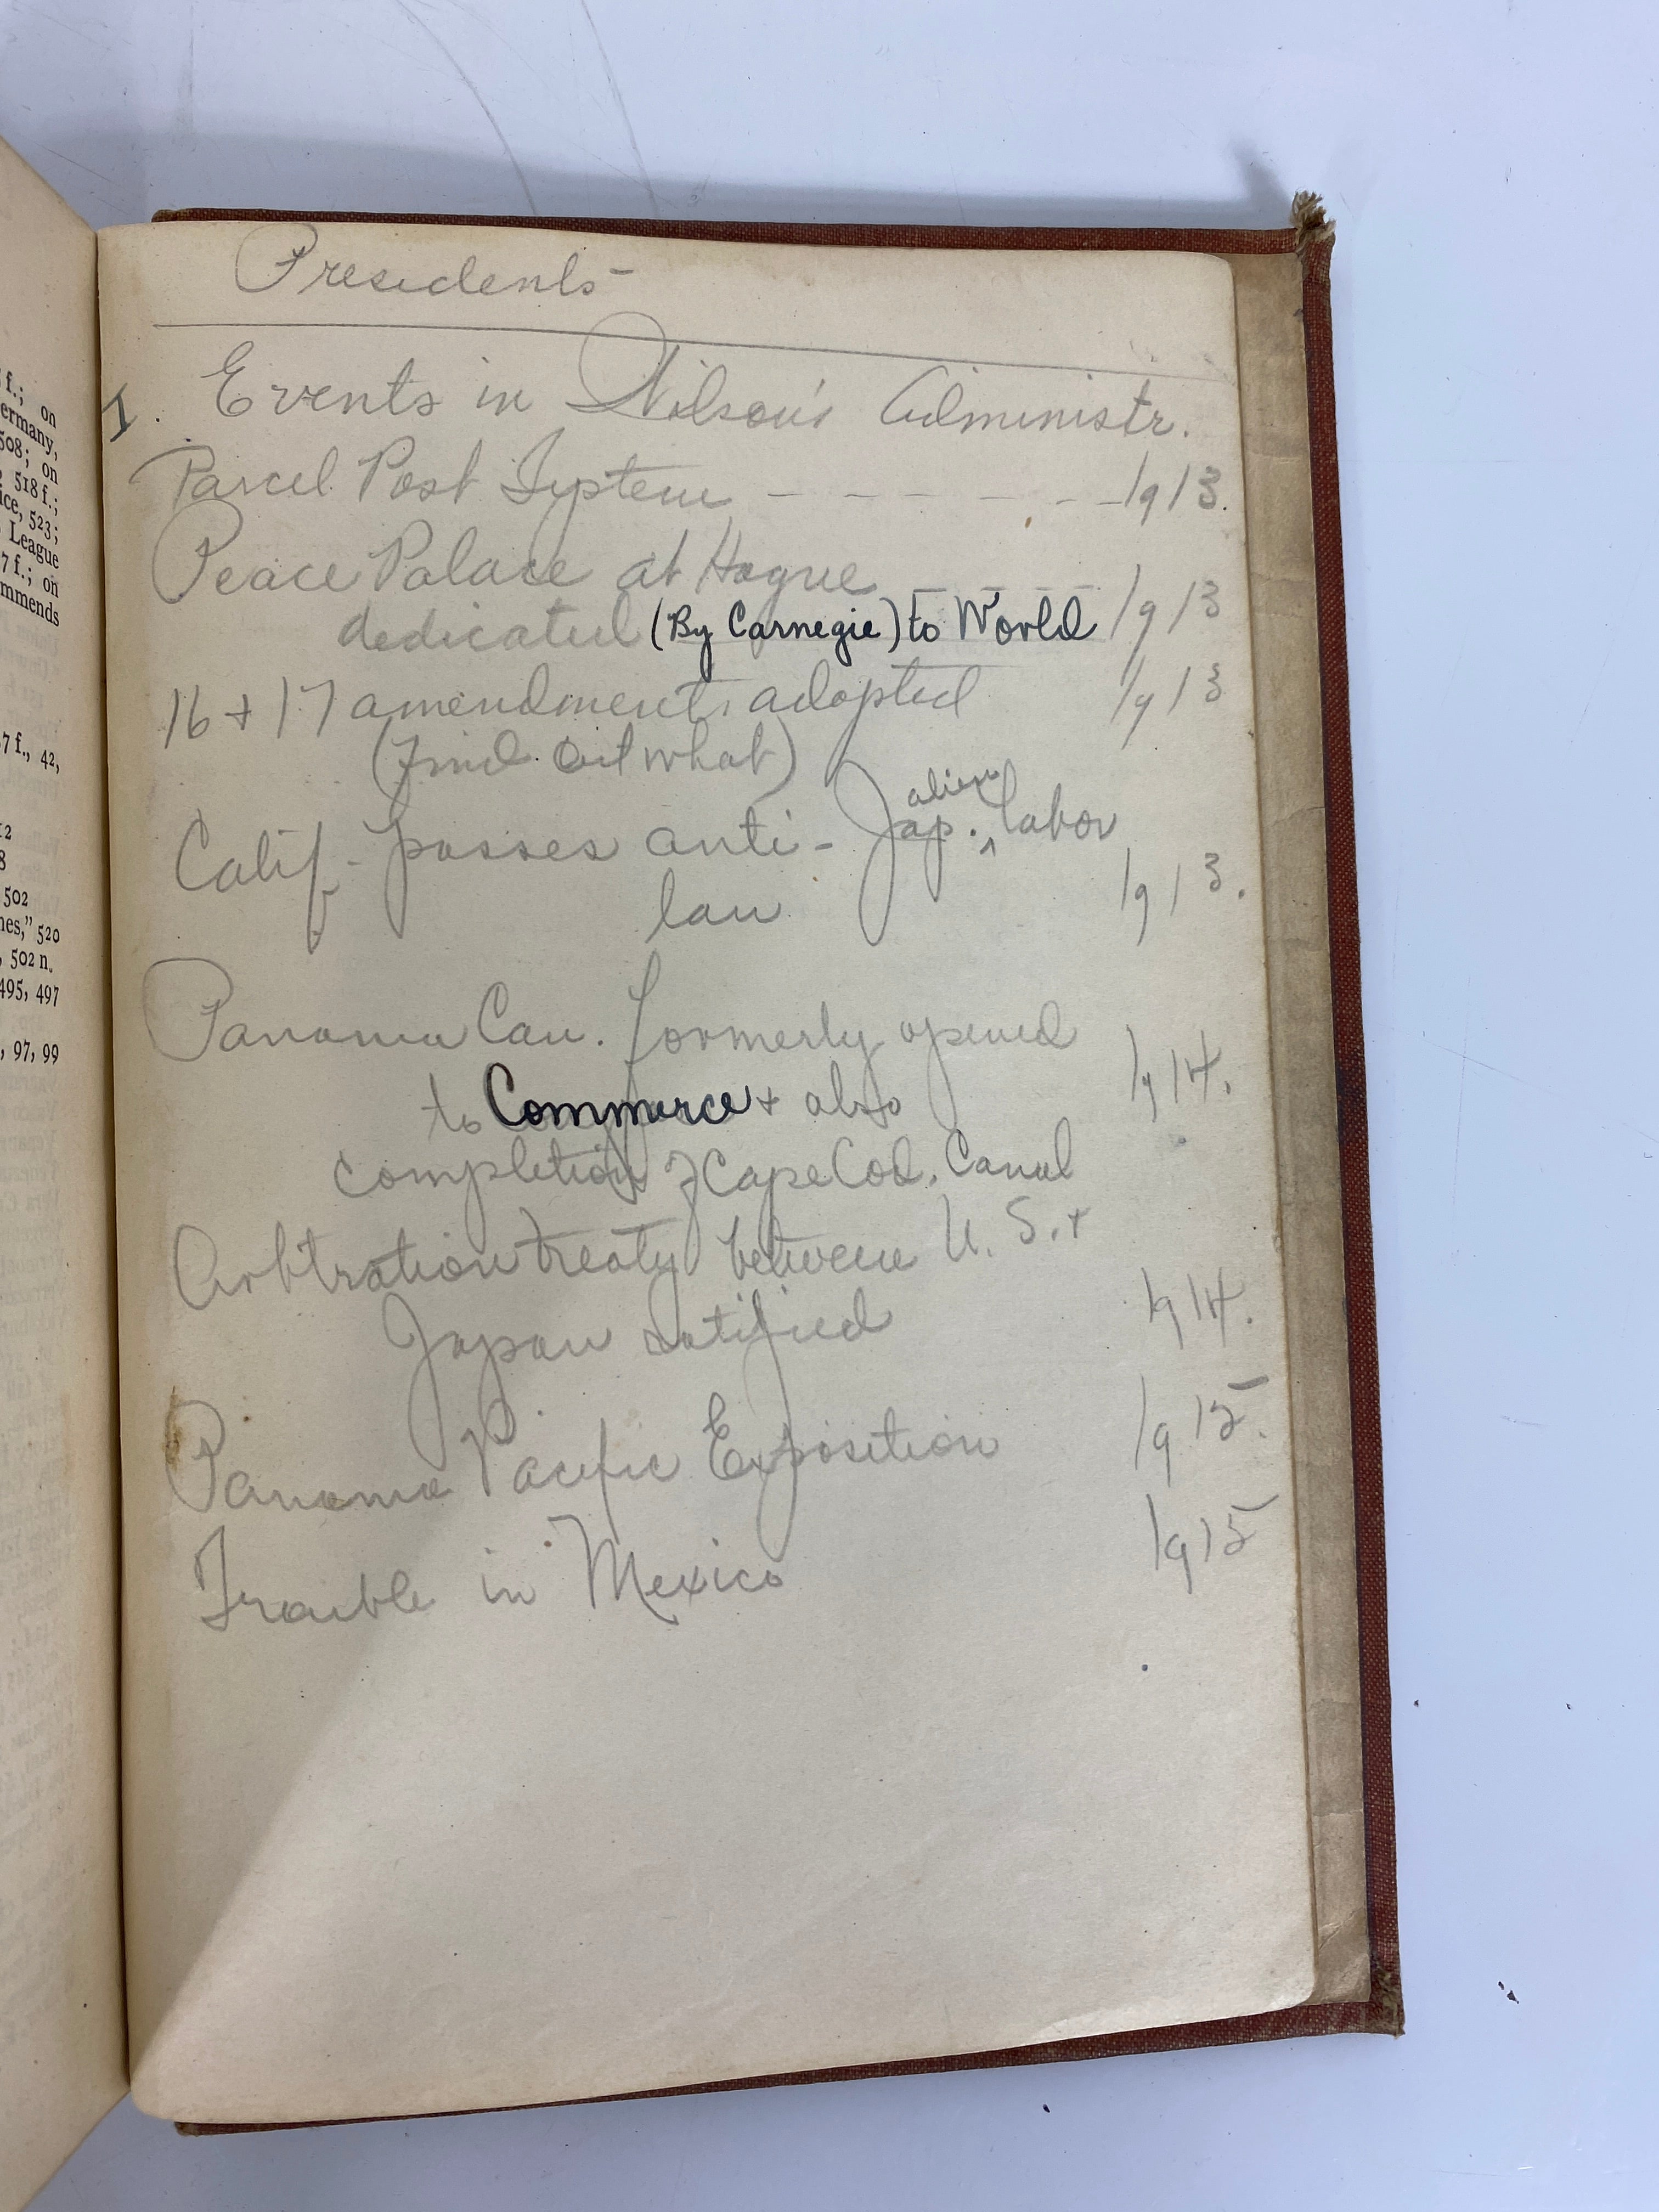 f.; on
ermany,
508; on
518 f.;
ice, 523;
League
7 f.; on
mmends
7 f., 42,
12
8
502
nes," 520
, 502 n.
495, 497
, 97, 99
Presidents
I. Events in Wilson's Administr.
Parcel Post System - - - - - - - 1913.
Peace Palace at Hague - - - -
dedicated (By Carnegie) to World 1913
16 + 17 amendments adopted 1913
(Find out what)
alien
Calif. passes anti-Jap. ^ labor
law 1913.
Panama Can. formerly opened
to Commerce + also 1914.
completion of Cape Cod. Canal
Arbtration treaty between U.S. +
Japan ratified 1914.
Panama Pacific Exposition 1915.
Trouble in Mexico 1915